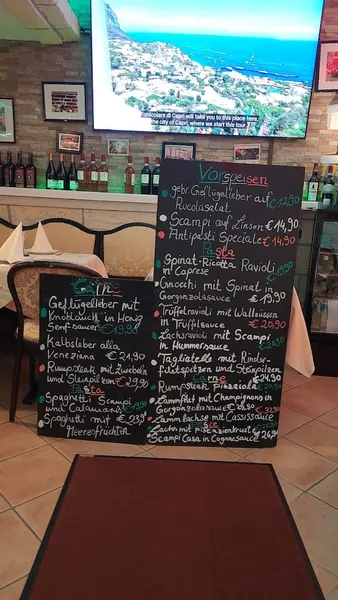 unicolare di Capri will take you to this place here,
the city of Capri, where we start this tour
Vorspeisen
gebr. Geflügelleber auf
Rucolasalat € 12,90
Scampi auf Linsen € 14,90
Antipasti Speciale € 14,90
Pasta
Spinat-Ricotta Ravioli
in Caprese
Gnocchi mit Spinat in
Gorgonzolasauce € 19,90
Trüffelravioli mit Wallnüssen
in Trüffelsauce € 20,90
Lachsravioli mit Scampi
in Hummersauce
Tagliatelle mit Rinder-
filetspitzen und Steinpilzen
€ 24,90
Carne
Rumpsteak Pizzaiola
Lammfilet mit Champignons in
Gorgonzolasauce € 29,90
Lammlachse mit Cassissauce
Pesce
Lachs mit Pistazienkruste
Scampi Casa in Cognacsauce
€ 26,90
Carne
Geflügelleber mit
Knoblauch in Honig
Senfsauce € 19,90
Kalbsleber alla
Veneziana € 24,90
Rumpsteak mit Zwiebeln
und Steinpilzen € 29,90
Pasta
Spaghetti Scampi
und Calamari
Spaghetti mit € 23,90
Meeresfrüchten